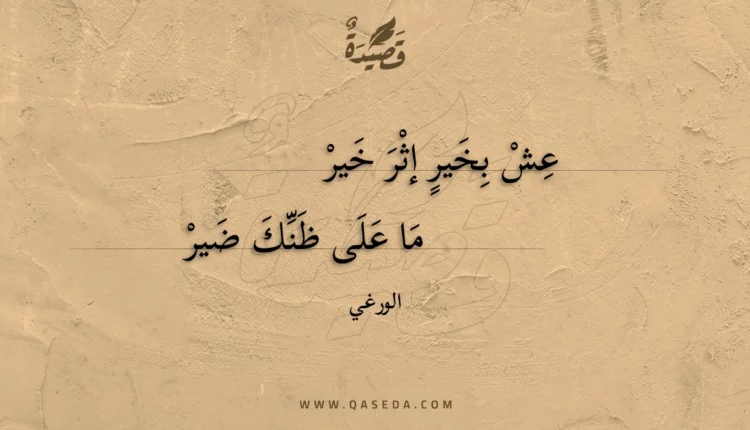 قَصِيدَةٌ
عِشْ بِخَيرٍ إثْرَ خَيرْ
مَا عَلَى ظَنِّكَ ضَيرْ
الورغي
WWW.QASEDA.COM